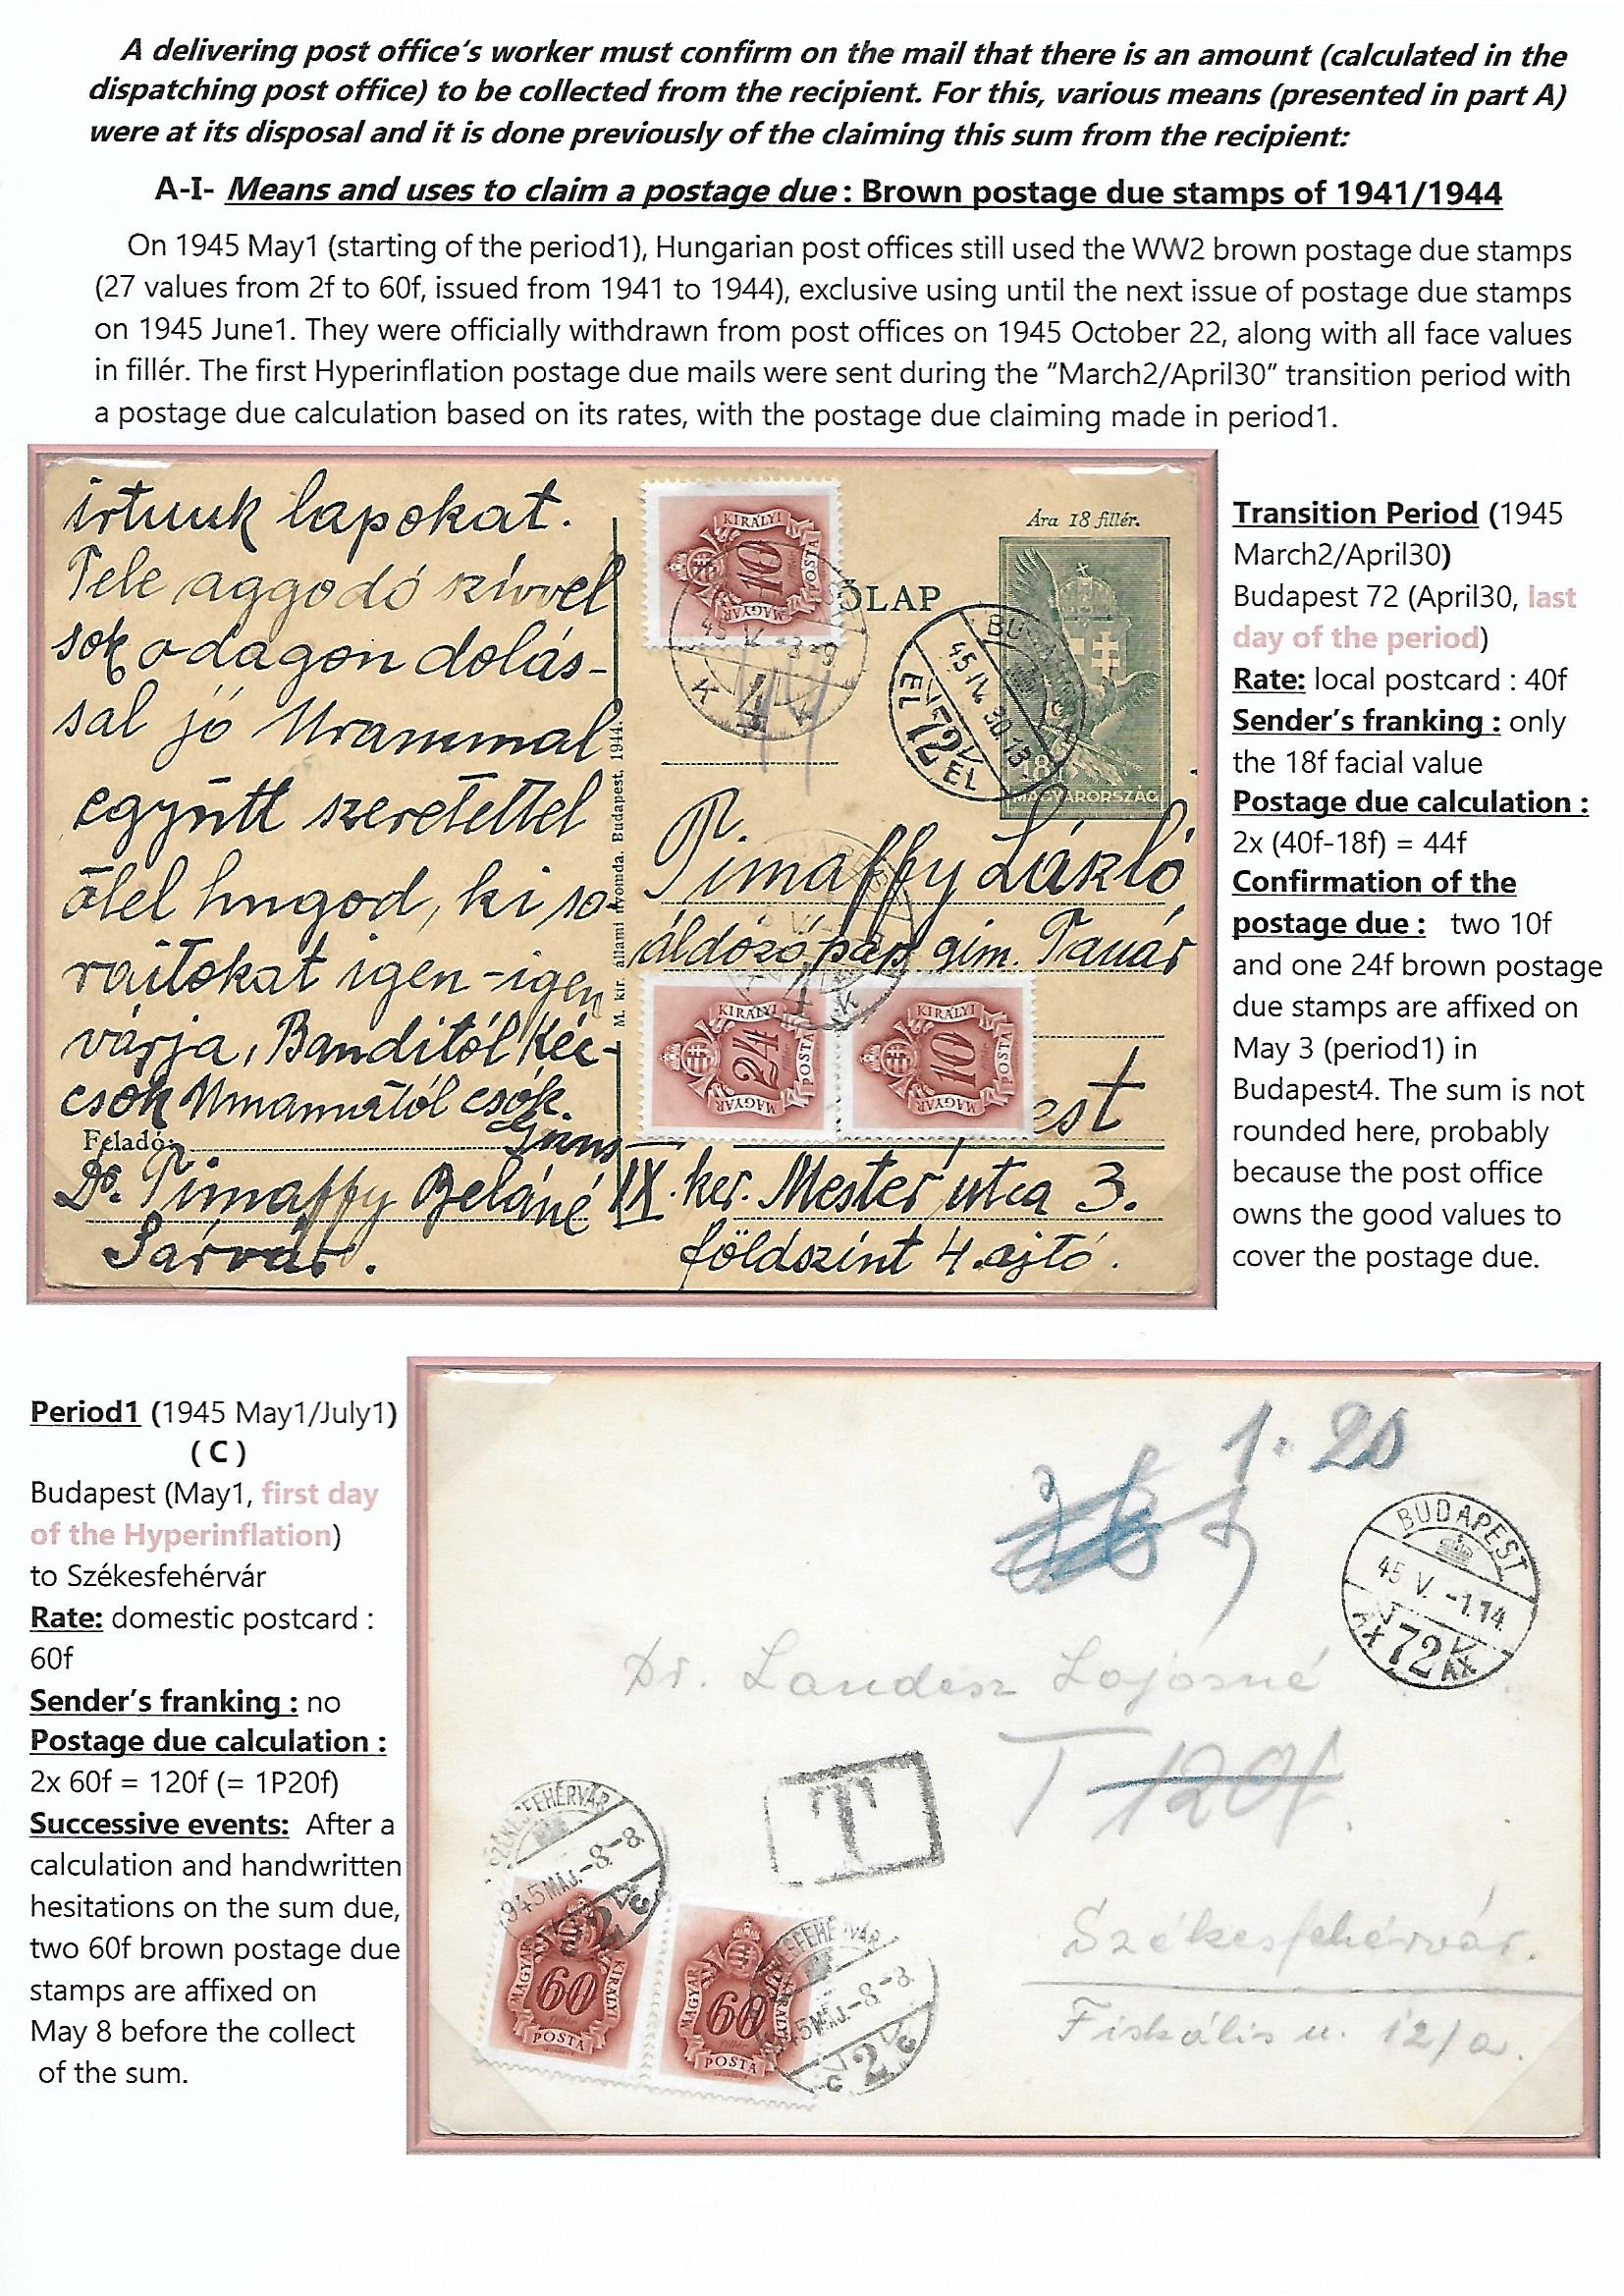 A delivering post office's worker must confirm on the mail that there is an amount (calculated in the
dispatching post office) to be collected from the recipient. For this, various means (presented in part A)
were at its disposal and it is done previously of the claiming this sum from the recipient:
A-I- Means and uses to claim a postage due : Brown postage due stamps of 1941/1944
On 1945 May1 (starting of the period1), Hungarian post offices still used the WW2 brown postage due stamps
(27 values from 2f to 60f, issued from 1941 to 1944), exclusive using until the next issue of postage due stamps
on 1945 June1. They were officially withdrawn from post offices on 1945 October 22, along with all face values
in fillér. The first Hyperinflation postage due mails were sent during the "March2/April30" transition period with
a postage due calculation based on its rates, with the postage due claiming made in period1.
írtunk lapokat.
Tele aggodó szívvel
sok odagondolás-
sal jó Urammal
együtt szeretettel
ölel hugod, ki so-
raitokat igen-igen
várja, Banditól kéz-
csók Umamától csók.
Feladó:
Dr. Timaffy Beláné
Sárvár.
M. kir. állami nyomda. Budapest, 1944.
KIRÁLYI
10
POSTA
MAGYAR
45 V. -3
4
K K
ŐLAP
BU
45 IV 30 13
72
EL EL
Ára 18 fillér.
18f
MAGYARORSZÁG
T.
Timaffy László
áldozópap gim. Tanár
KIRÁLYI
24
POSTA
MAGYAR
KIRÁLYI
10
POSTA
MAGYAR
est
IX. ker. Mester utca 3.
földszint 4. ajtó.
Transition Period (1945
March2/April30)
Budapest 72 (April30, last
day of the period)
Rate: local postcard : 40f
Sender's franking : only
the 18f facial value
Postage due calculation :
2x (40f-18f) = 44f
Confirmation of the
postage due : two 10f
and one 24f brown postage
due stamps are affixed on
May 3 (period1) in
Budapest4. The sum is not
rounded here, probably
because the post office
owns the good values to
cover the postage due.
Period1 (1945 May1/July1)
( C )
Budapest (May1, first day
of the Hyperinflation)
to Székesfehérvár
Rate: domestic postcard :
60f
Sender's franking : no
Postage due calculation :
2x 60f = 120f (= 1P20f)
Successive events: After a
calculation and handwritten
hesitations on the sum due,
two 60f brown postage due
stamps are affixed on
May 8 before the collect
of the sum.
1.20
BUDAPEST
45 V. -1.14
72
AX AX
Dr. Landesz Lajosné
T 120f.
T
SZÉKESFEHÉRVÁR
945 MÁJ. -8-8
2
MAGYAR
KIRÁLYI
60
POSTA
MAGYAR
KIRÁLYI
60
POSTA
SFEHÉRVÁR
945 MÁJ. -8-8
2
Székesfehérvár.
Fiskális u. 12/a.